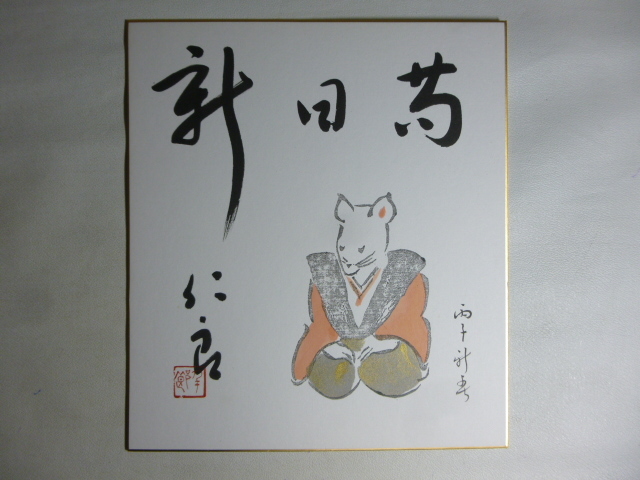 苟日新
丙子新春
仁良